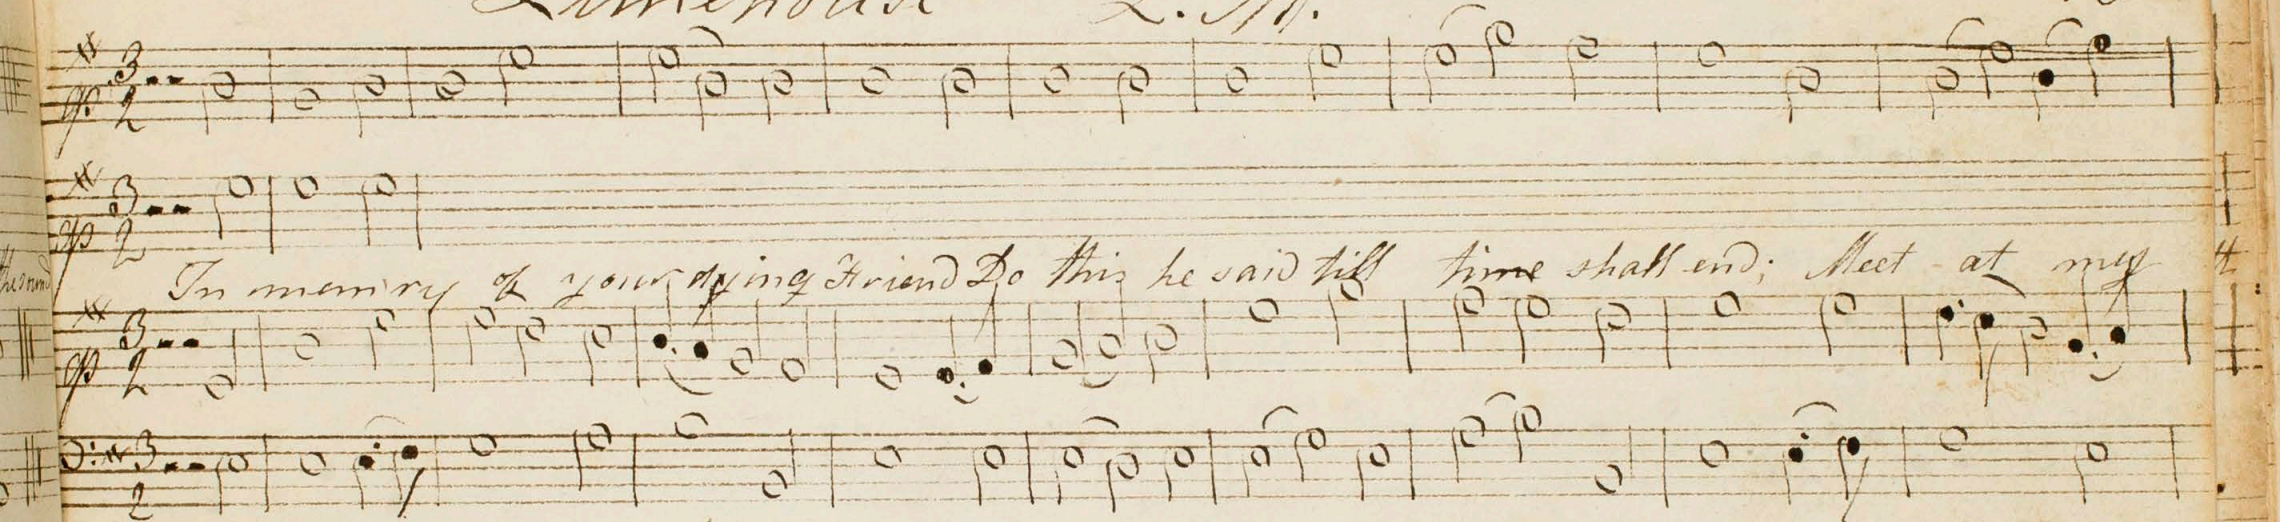 Limehouse L. M.
3 2
3 2
In memory of your dying Friend Do this he said till time shall end; Meet at my
3 2
3 2